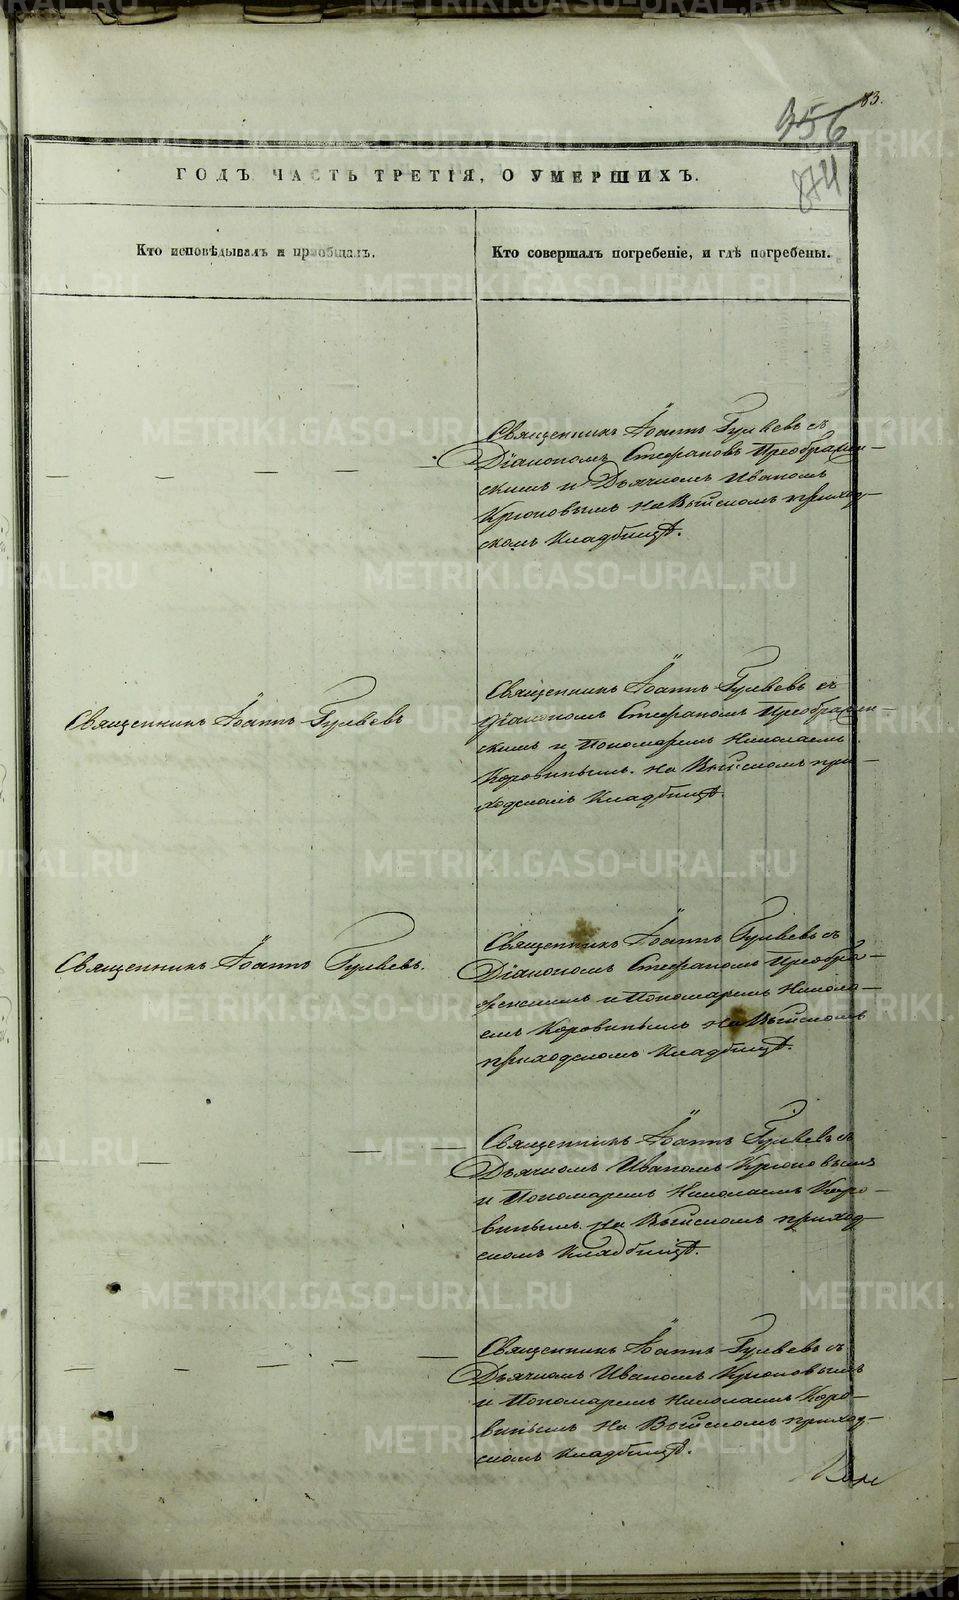 83.
356
874
ГОДЪ ЧАСТЬ ТРЕТІЯ, О УМЕРШИХЪ.
Кто исповѣдывалъ и пріобщалъ.
Кто совершалъ погребеніе, и гдѣ погребены.
Священникъ Іоаннъ Гуляевъ съ
Діакономъ Стефаномъ Преображен-
скимъ и Дьячкомъ Иваномъ
Крюковымъ на Выйскомъ приход-
скомъ кладбищѣ.
Священникъ Іоаннъ Гуляевъ
Священникъ Іоаннъ Гуляевъ съ
Діакономъ Стефаномъ Преображен-
скимъ и Пономаремъ Николаемъ
Коровинымъ на Выйскомъ при-
ходскомъ кладбищѣ.
Священникъ Іоаннъ Гуляевъ.
Священникъ Іоаннъ Гуляевъ съ
Діакономъ Стефаномъ Преобра-
женскимъ и Пономаремъ Никола-
емъ Коровинымъ на Выйскомъ
приходскомъ кладбищѣ.
Священникъ Іоаннъ Гуляевъ съ
Дьячкомъ Иваномъ Крюковымъ
и Пономаремъ Николаемъ Коро-
винымъ на Выйскомъ приход-
скомъ кладбищѣ.
Священникъ Іоаннъ Гуляевъ съ
Дьячкомъ Иваномъ Крюковымъ
и Пономаремъ Николаемъ Коро-
винымъ на Выйскомъ приход-
скомъ кладбищѣ.
METRIKI.GASO-URAL.RU